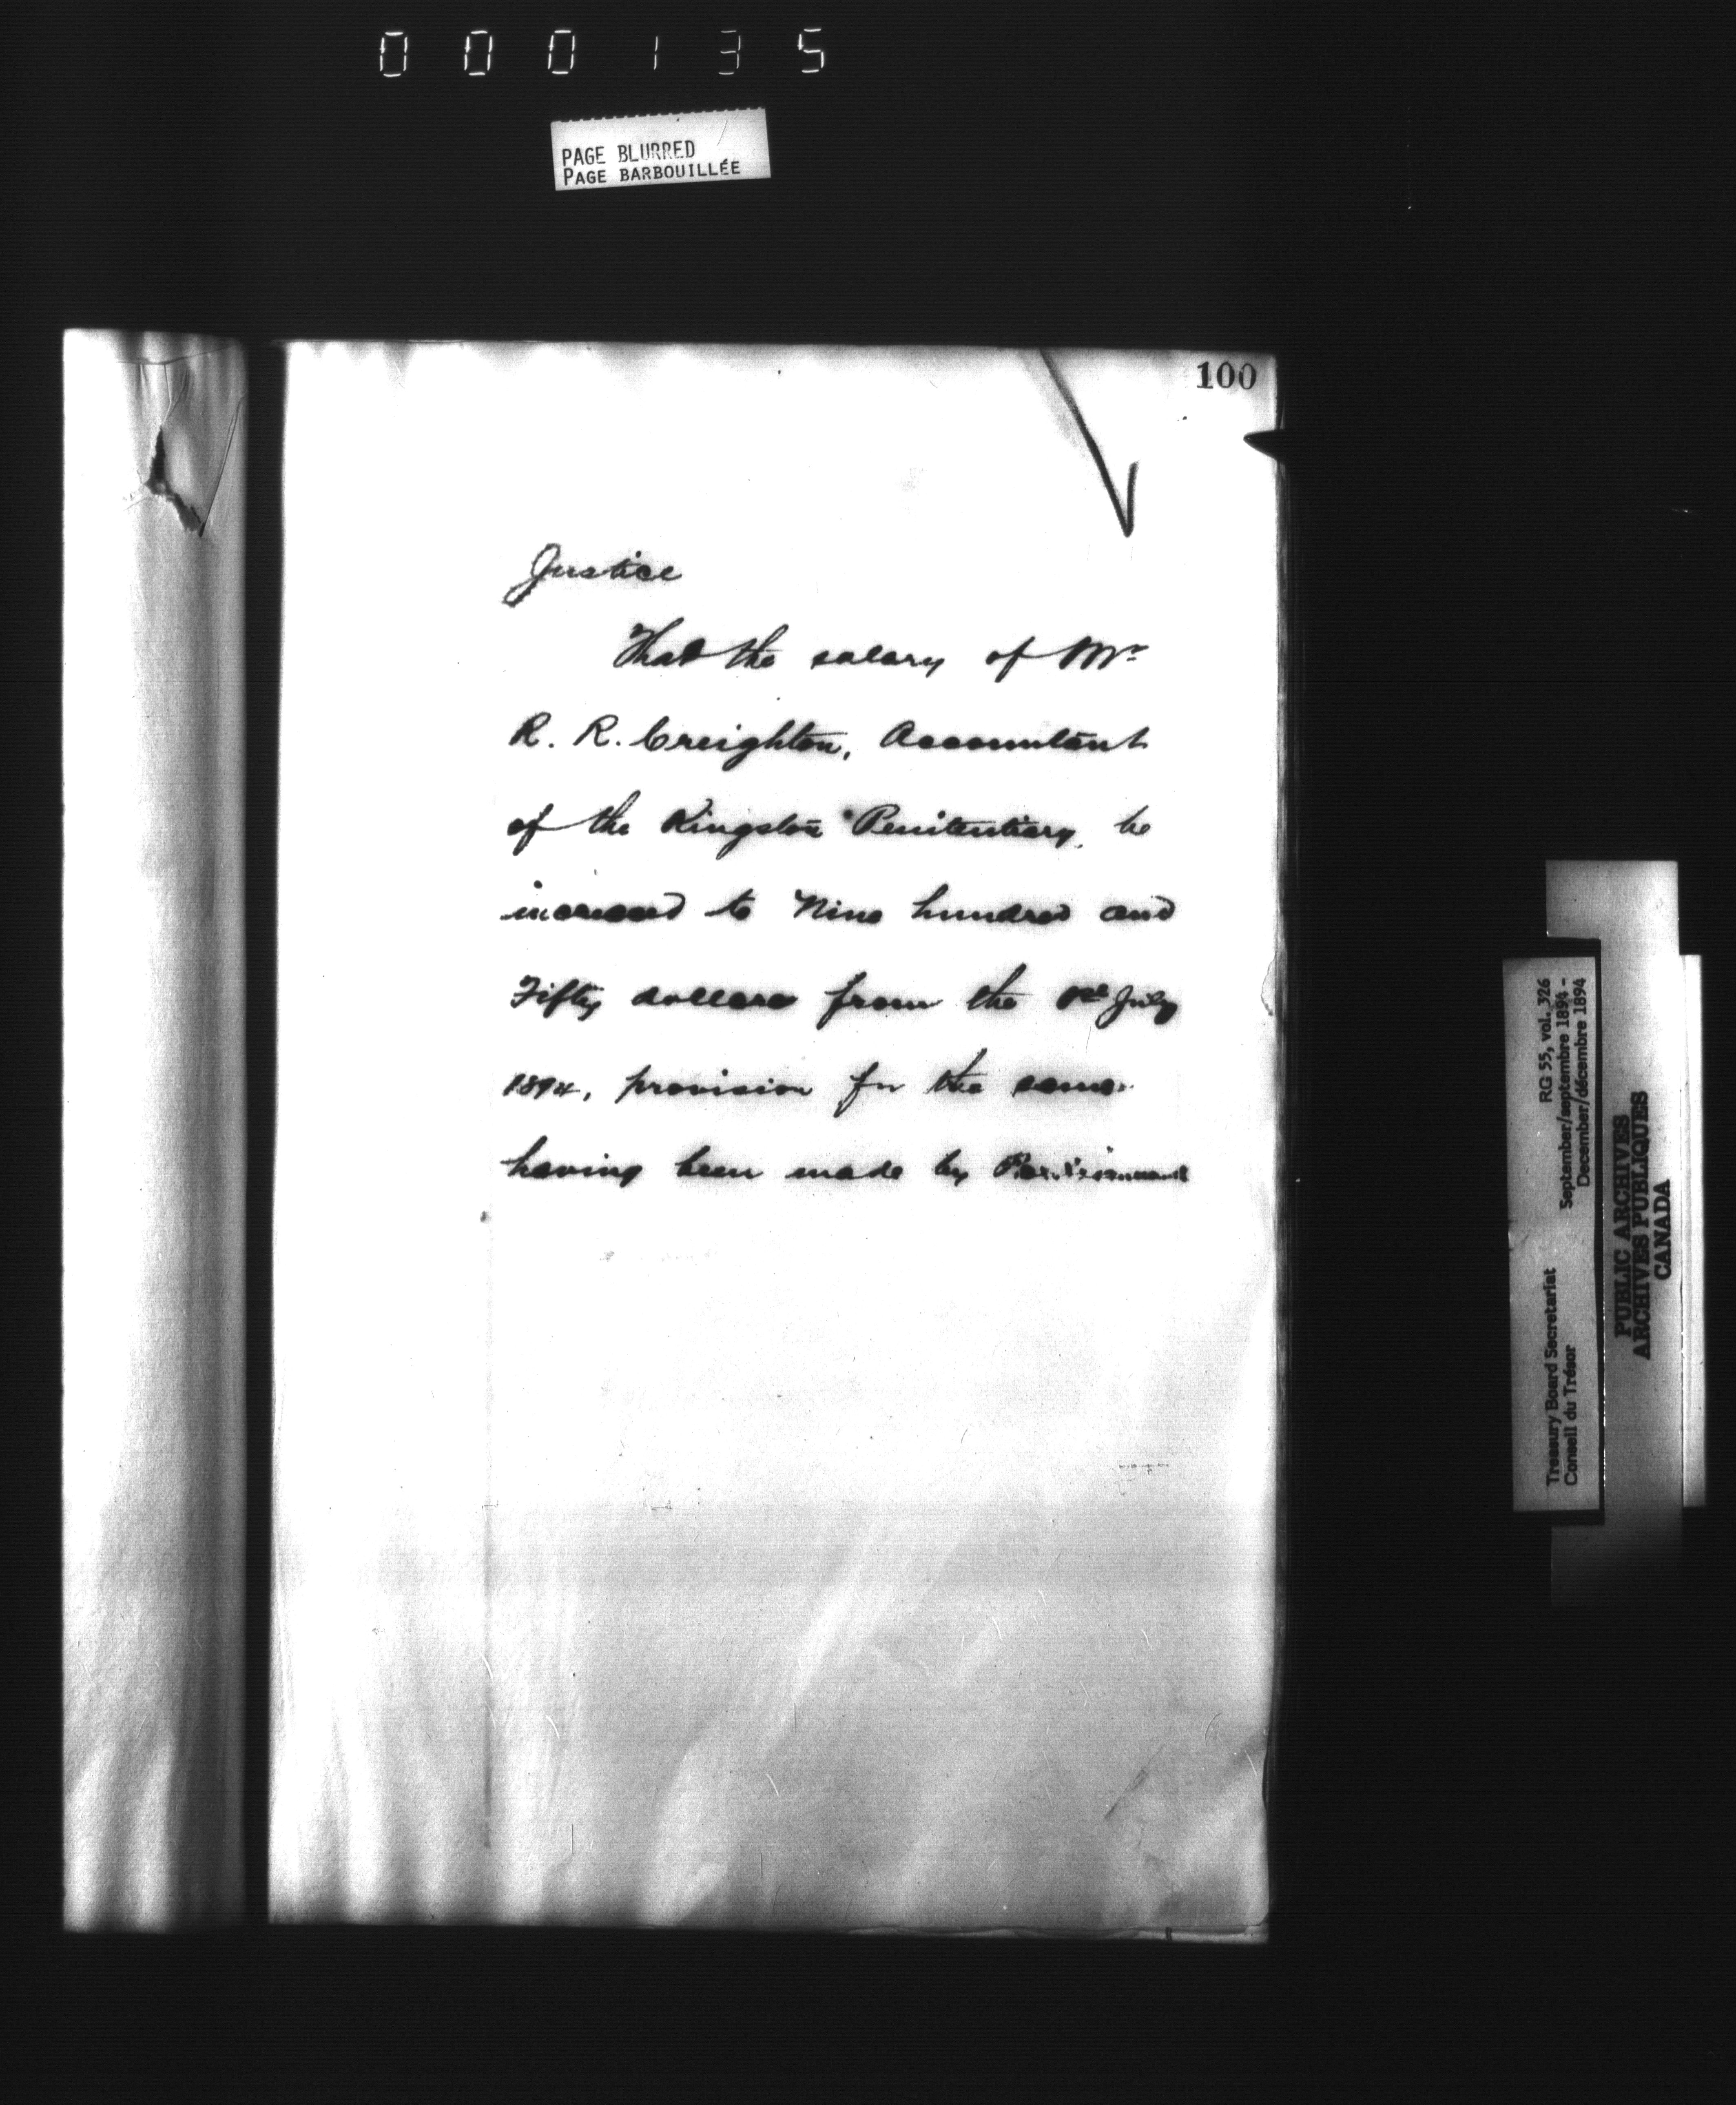 000135
PAGE BLURRED
PAGE BARBOUILLÉE
100
Justice
That the salary of Mr
R. R. Creighton, Accountant
of the Kingston Penitentiary, be
increased to Nine hundred and
Fifty dollars from the 1st July
1894, provision for the same
having been made by Parliament
Treasury Board Secretariat RG 55, vol. 326
Conseil du Trésor September/septembre 1894 -
December/décembre 1894
PUBLIC ARCHIVES
ARCHIVES PUBLIQUES
CANADA